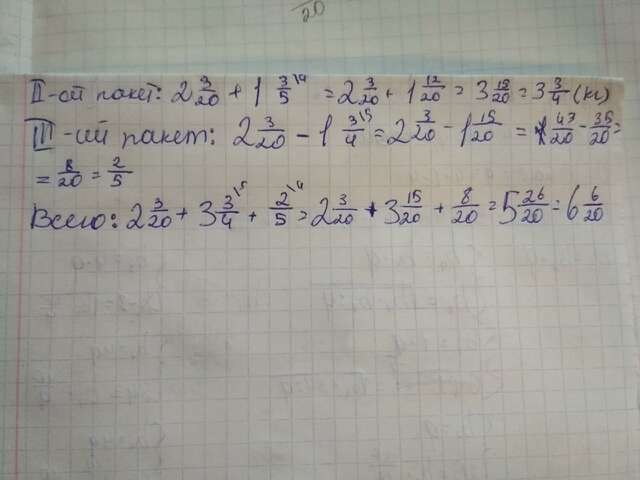 20
II-ой пакет: 2 3/20 + 1 3/5 \4 = 2 3/20 + 1 12/20 = 3 15/20 = 3 3/4 (кг)
III-ий пакет: 2 3/20 - 1 3/4 \5 = 2 3/20 - 1 15/20 = 43/20 - 35/20 =
= 8/20 = 2/5
Всего: 2 3/20 + 3 3/4 \5 + 2/5 \4 = 2 3/20 + 3 15/20 + 8/20 = 5 26/20 = 6 6/20